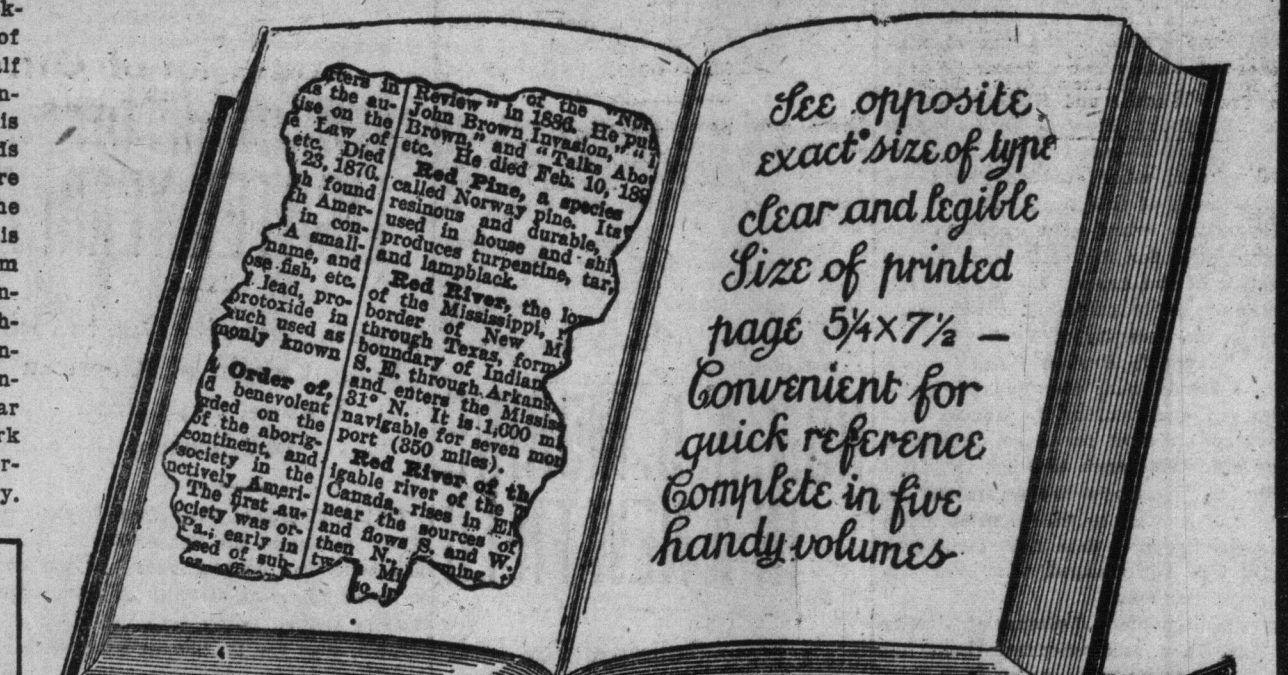 k-
of
alf
n-
is
re
ne
is
m
n-
h-
n-
n-
ar
rk
r-
y.
in
is the au-
ise on the
e Law of
etc. Died
23, 1876.
gh found
th Amer-
in con-
A small-
name, and
ose fish, etc.
lead, pro-
protoxide in
much used as
monly known
Order of,
d benevolent
nded on the
of the aborig-
continent, and
society in the
nctively Ameri-
The first au-
ociety was or-
Pa., early in
sed of sub-
of the "Nor
Review" in 1886. He pub
John Brown Invasion," "
Brown," and "Talks Abo
etc. He died Feb. 10, 189
Red Pine, a species
called Norway pine. Its
resinous and durable,
used in house and shi
produces turpentine, tar,
and lampblack.
Red River, the low
of the Mississippi,
border of New M
through Texas, form
boundary of Indian
S. E. through Arkan
and enters the Missis
31° N. It is 1,000 mi
navigable for seven mon
port (350 miles).
Red River of th
igable river of the
Canada, rises in El
near the sources of
and flows S. and W.
then N.
See opposite
exact size of type
clear and legible
Size of printed
page 5¼ x 7½ —
Convenient for
quick reference
Complete in five
handy volumes